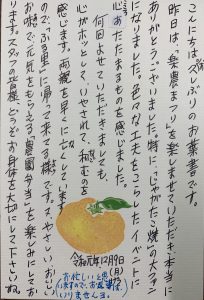 こんにちは。久しぶりのお葉書です。
昨日は、「楽農まつり」を楽しませていただき、本当に
ありがとうございました。特に「じゃがたら焼」の大ファン
になりました。色々な工夫をこらしたイベントに
心あたたまるものを感じました。
何回よせていただきましても、
心がホッとして、いやされて、和むものを
感じます。両親を早くに亡くしています
ので、「ふる里」に帰って来てる様です。又、やさしい、おいしい
お味で元気をもらえる「農園弁当」を楽しみにしてお
ります。スタッフの皆様、どうぞお身体を大切にして下さいね。
令和元年12月9日(月)
お忙しいと思
いますので、お返事は
いりませんヨ。